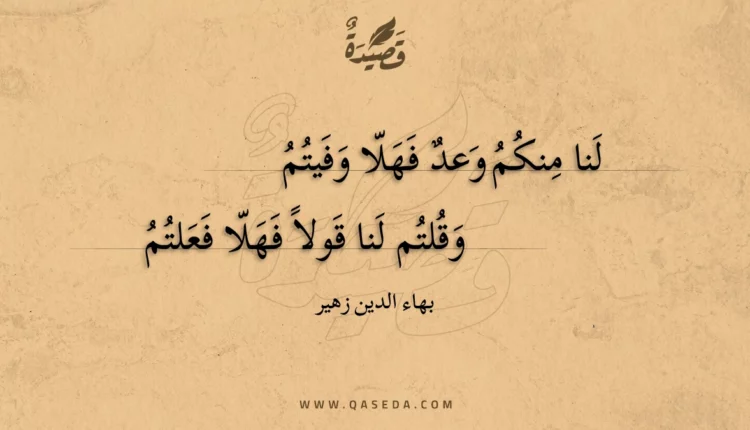 قَصِيدَةٌ
لَنا مِنكُمُ وَعدٌ فَهَلّا وَفَيتُمُ
وَقُلتُم لَنا قَولاً فَهَلّا فَعَلتُمُ
بهاء الدين زهير
WWW.QASEDA.COM